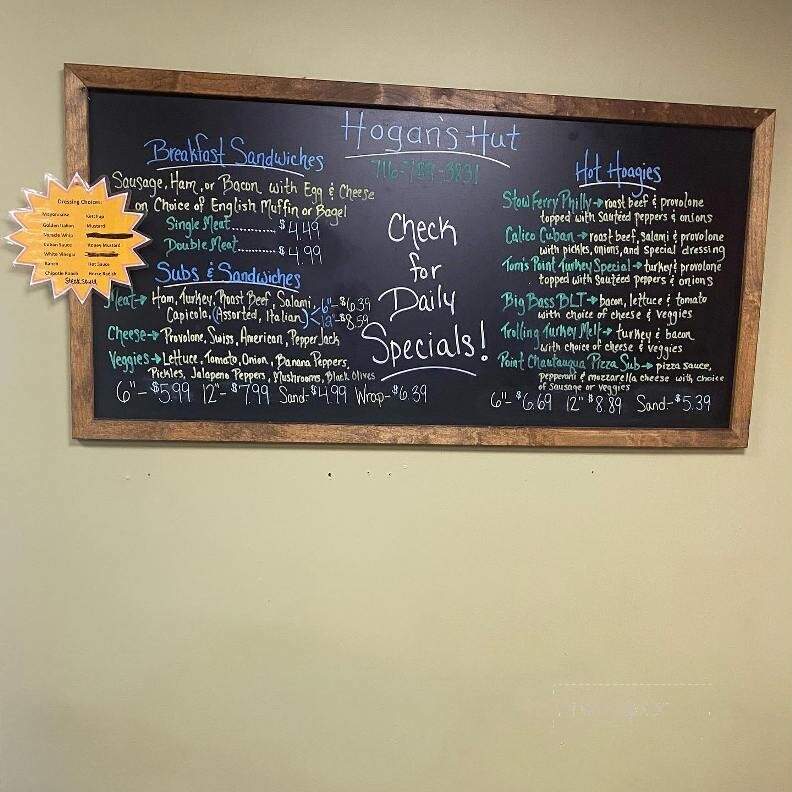 Hogan's Hut
716-789-3831
Breakfast Sandwiches
Sausage, Ham, or Bacon with Egg & Cheese
on Choice of English Muffin or Bagel
Single Meat.......... $4.49
Double Meat.......... $4.99
Subs & Sandwiches
Meat→ Ham, Turkey, Roast Beef, Salami,
Capicola, (Assorted, Italian) < 6"-$6.39
12"-$8.59
Cheese→ Provolone, Swiss, American, Pepper Jack
Veggies→ Lettuce, Tomato, Onion, Banana Peppers,
Pickles, Jalapeno Peppers, Mushrooms, Black Olives
6"-$5.99 12"-$7.99 Sand-$4.99 Wrap-$6.39
Check
for
Daily
Specials!
Hot Hoagies
Stow Ferry Philly→ roast beef & provolone
topped with Sautéed peppers & onions
Calico Cuban→ roast beef, salami & provolone
with pickles, onions, and special dressing
Tom's Point Turkey Special→ turkey & provolone
topped with Sautéed peppers & onions
Big Bass BLT→ bacon, lettuce & tomato
with choice of cheese & veggies
Trolling Turkey Melt→ turkey & bacon
with choice of cheese & veggies
Point Chautauqua Pizza Sub→ pizza sauce,
pepperoni & mozzarella cheese with choice
of sausage or veggies
6"-$6.69 12"$8.89 Sand-$5.39
Dressing Choices:
Mayonnaise Ketchup
Golden Italian Mustard
Miracle Whip
Cuban Sauce Honey Mustard
White Vinegar
Ranch Hot Sauce
Chipotle Ranch Horse Radish